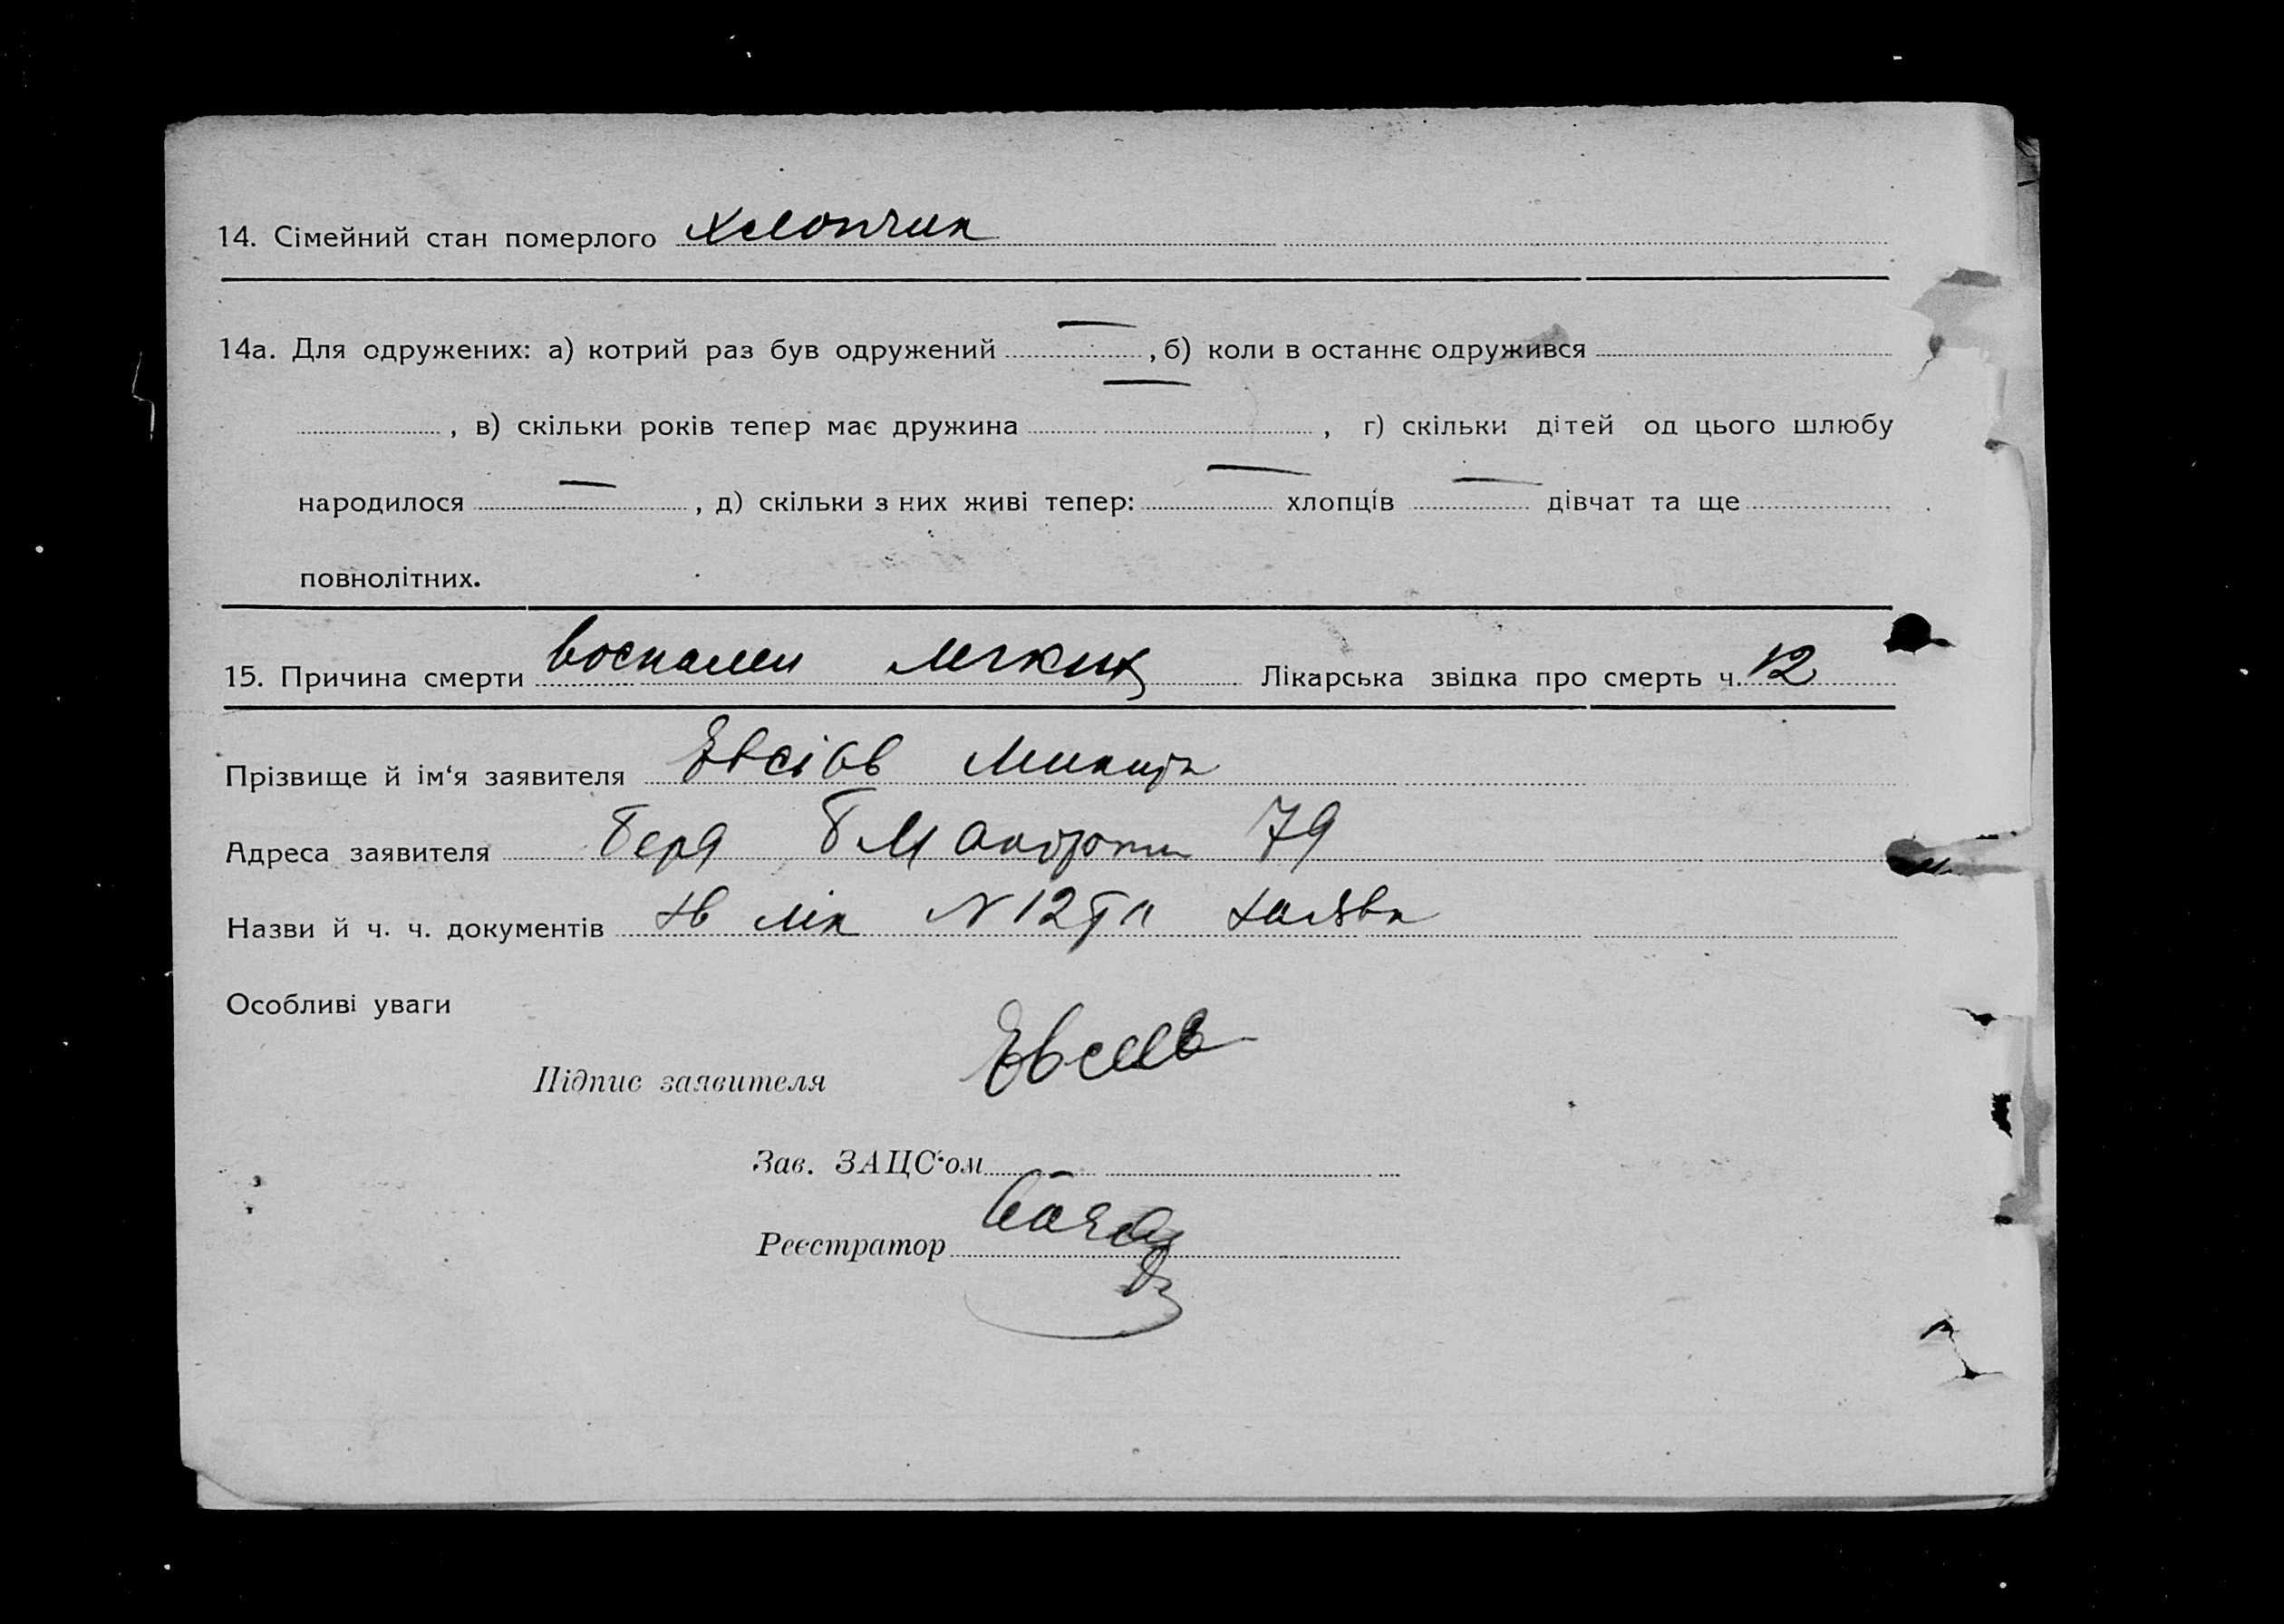 14. Сімейний стан померлого хлопчик
14а. Для одружених: а) котрий раз був одружений — , б) коли в останнє одружився
, в) скільки років тепер має дружина — , г) скільки дітей од цього шлюбу
народилося — , д) скільки з них живі тепер: — хлопців — дівчат та ще
повнолітних.
15. Причина смерти воспален легких Лікарська звідка про смерть ч. 12
Прізвище й ім'я заявителя Евсіев Микита
Адреса заявителя Берд 79
Назви й ч. ч. документів лік N 12 заява
Особливі уваги
Підпис заявителя Евсеев
Зав. ЗАЦС'ом
Реєстратор